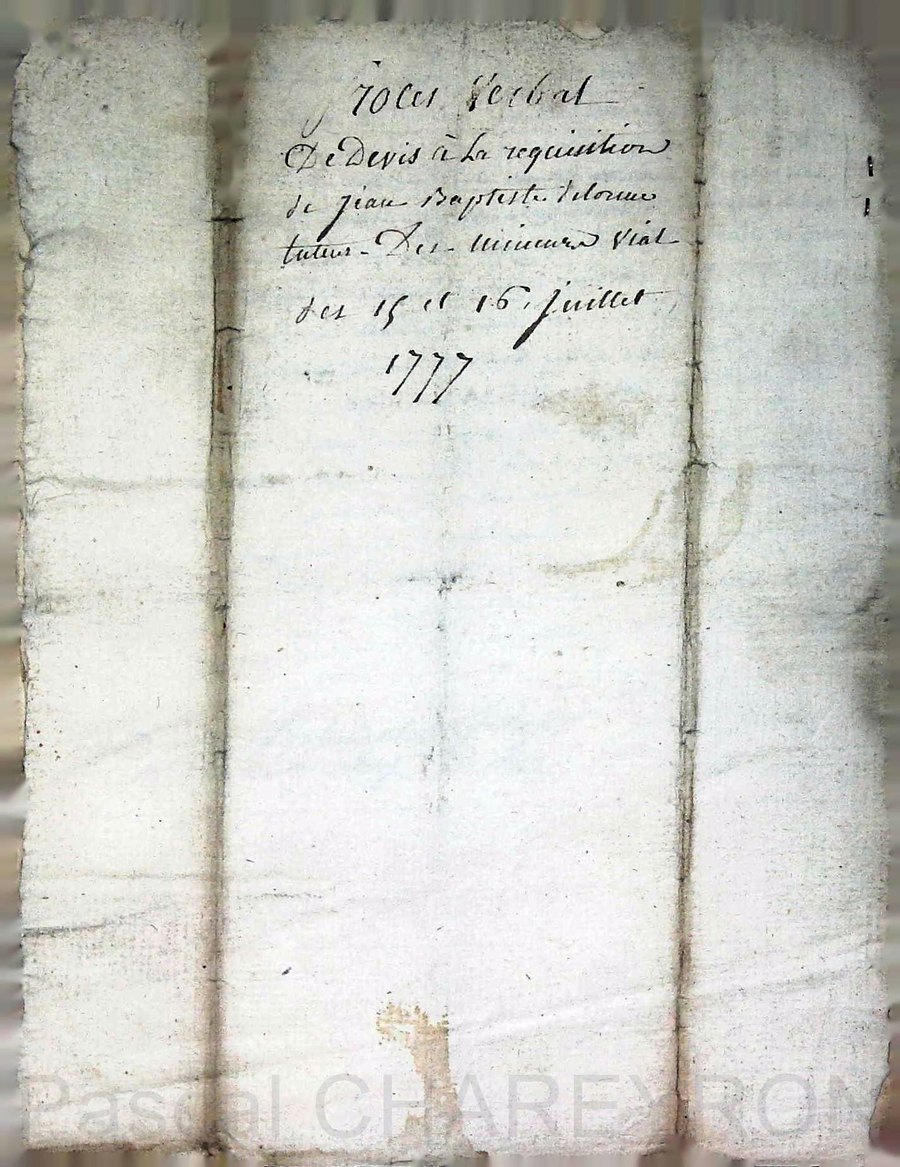 Proces Verbal
De Devis à La requisition
de jean Baptiste Delorme
tuteur Des mineurs Vial
des 15 et 16 juillet
1777
Pascal CHAREYRON